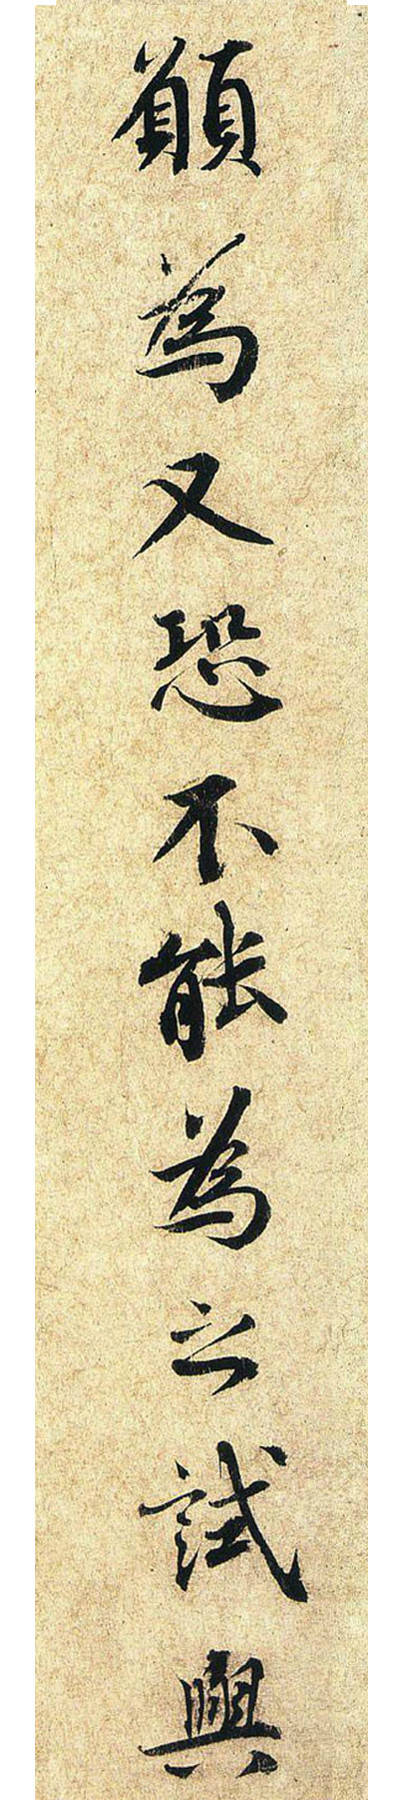 願為又恐不能為之試與